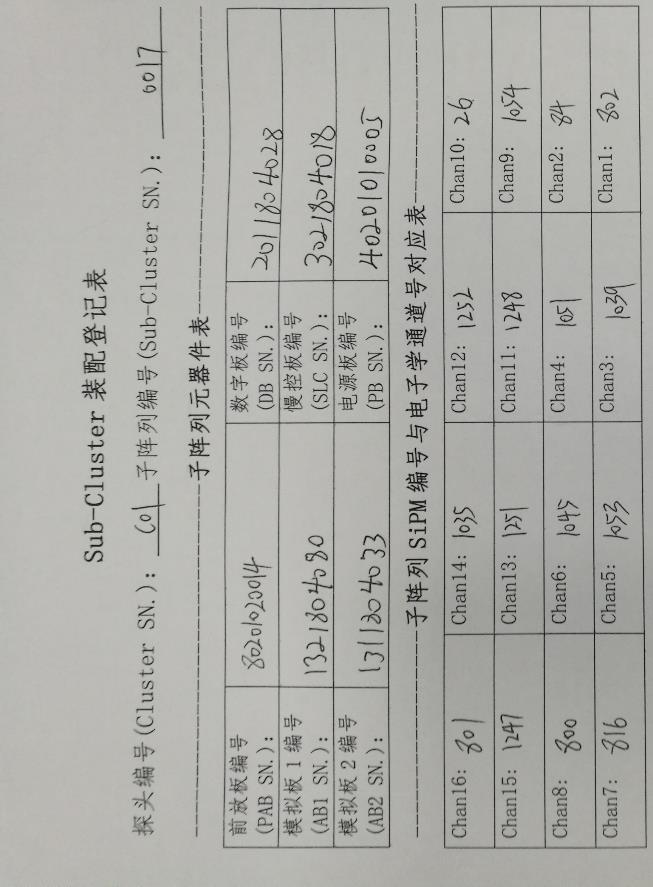 Sub-Cluster 装配登记表
探头编号(Cluster SN.)： C01 子阵列编号(Sub-Cluster SN.)： 0017
子阵列元器件表
前放板编号 (PAB SN.)： 80201020014 数字板编号 (DB SN.)： 2011804028
模拟板 1 编号 (AB1 SN.)： 1321804080 慢控板编号 (SLC SN.)： 3021804018
模拟板 2 编号 (AB2 SN.)： 1311804033 电源板编号 (PB SN.)： 40201010005
子阵列 SiPM 编号与电子学通道号对应表
Chan16: 801 Chan14: 1035 Chan12: 1252 Chan10: 26
Chan15: 1247 Chan13: 1251 Chan11: 1248 Chan9: 1054
Chan8: 800 Chan6: 1045 Chan4: 1051 Chan2: 84
Chan7: 816 Chan5: 1053 Chan3: 1039 Chan1: 802